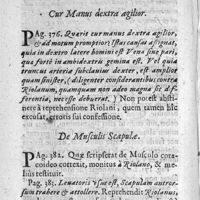 Cur Manus dextra agilior.
PAg. 376. Quæris cur manus dextra agilior,
& ad motum promptior? Istas causas assignat,
quia in dextro latere homini est Vena sine pari,
qua fortè in ambidextris gemina est. Vel quia
truncus arteriæ subclaviæ dexter, est amplior
quam sinister, (diligenter considerantibus contra
Riolanum, quamquam non adeo magna sit dif-
ferentia, necesse dehortat.) Non potest absti-
nere à reprehensione Riolani, quem tamen hîc
excusat, erroris sui confessione.
De Musculis Scapulæ.
PAg. 381. Quæ scripserat de Musculo cora-
coideo correxit, monitus à Riolano, & me-
lius restituit.
Pag. 385. Levatoris usus est, Scapulam antror-
sum trahere & attollere. Reprehendit Riolanus,